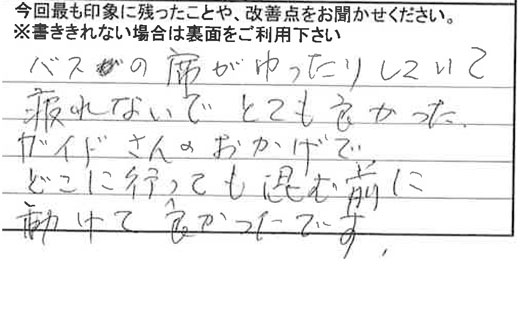 今回最も印象に残ったことや、改善点をお聞かせください。
※書ききれない場合は裏面をご利用下さい
バスの席がゆったりしていて
疲れないでとても良かった.
ガイドさんのおかげで
どこに行っても混む前に
動けて良かったです,